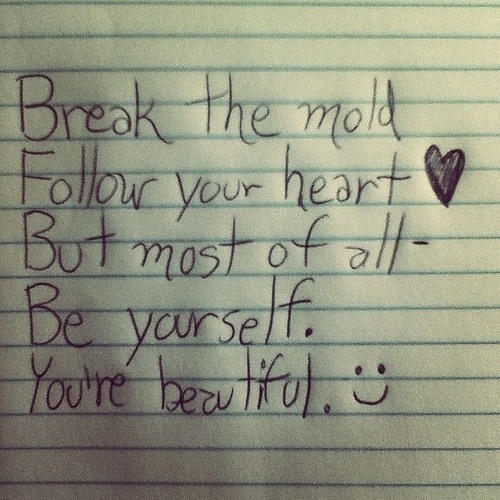 Break the mold
Follow your heart ♥
But most of all-
Be yourself.
You're beautiful. :)